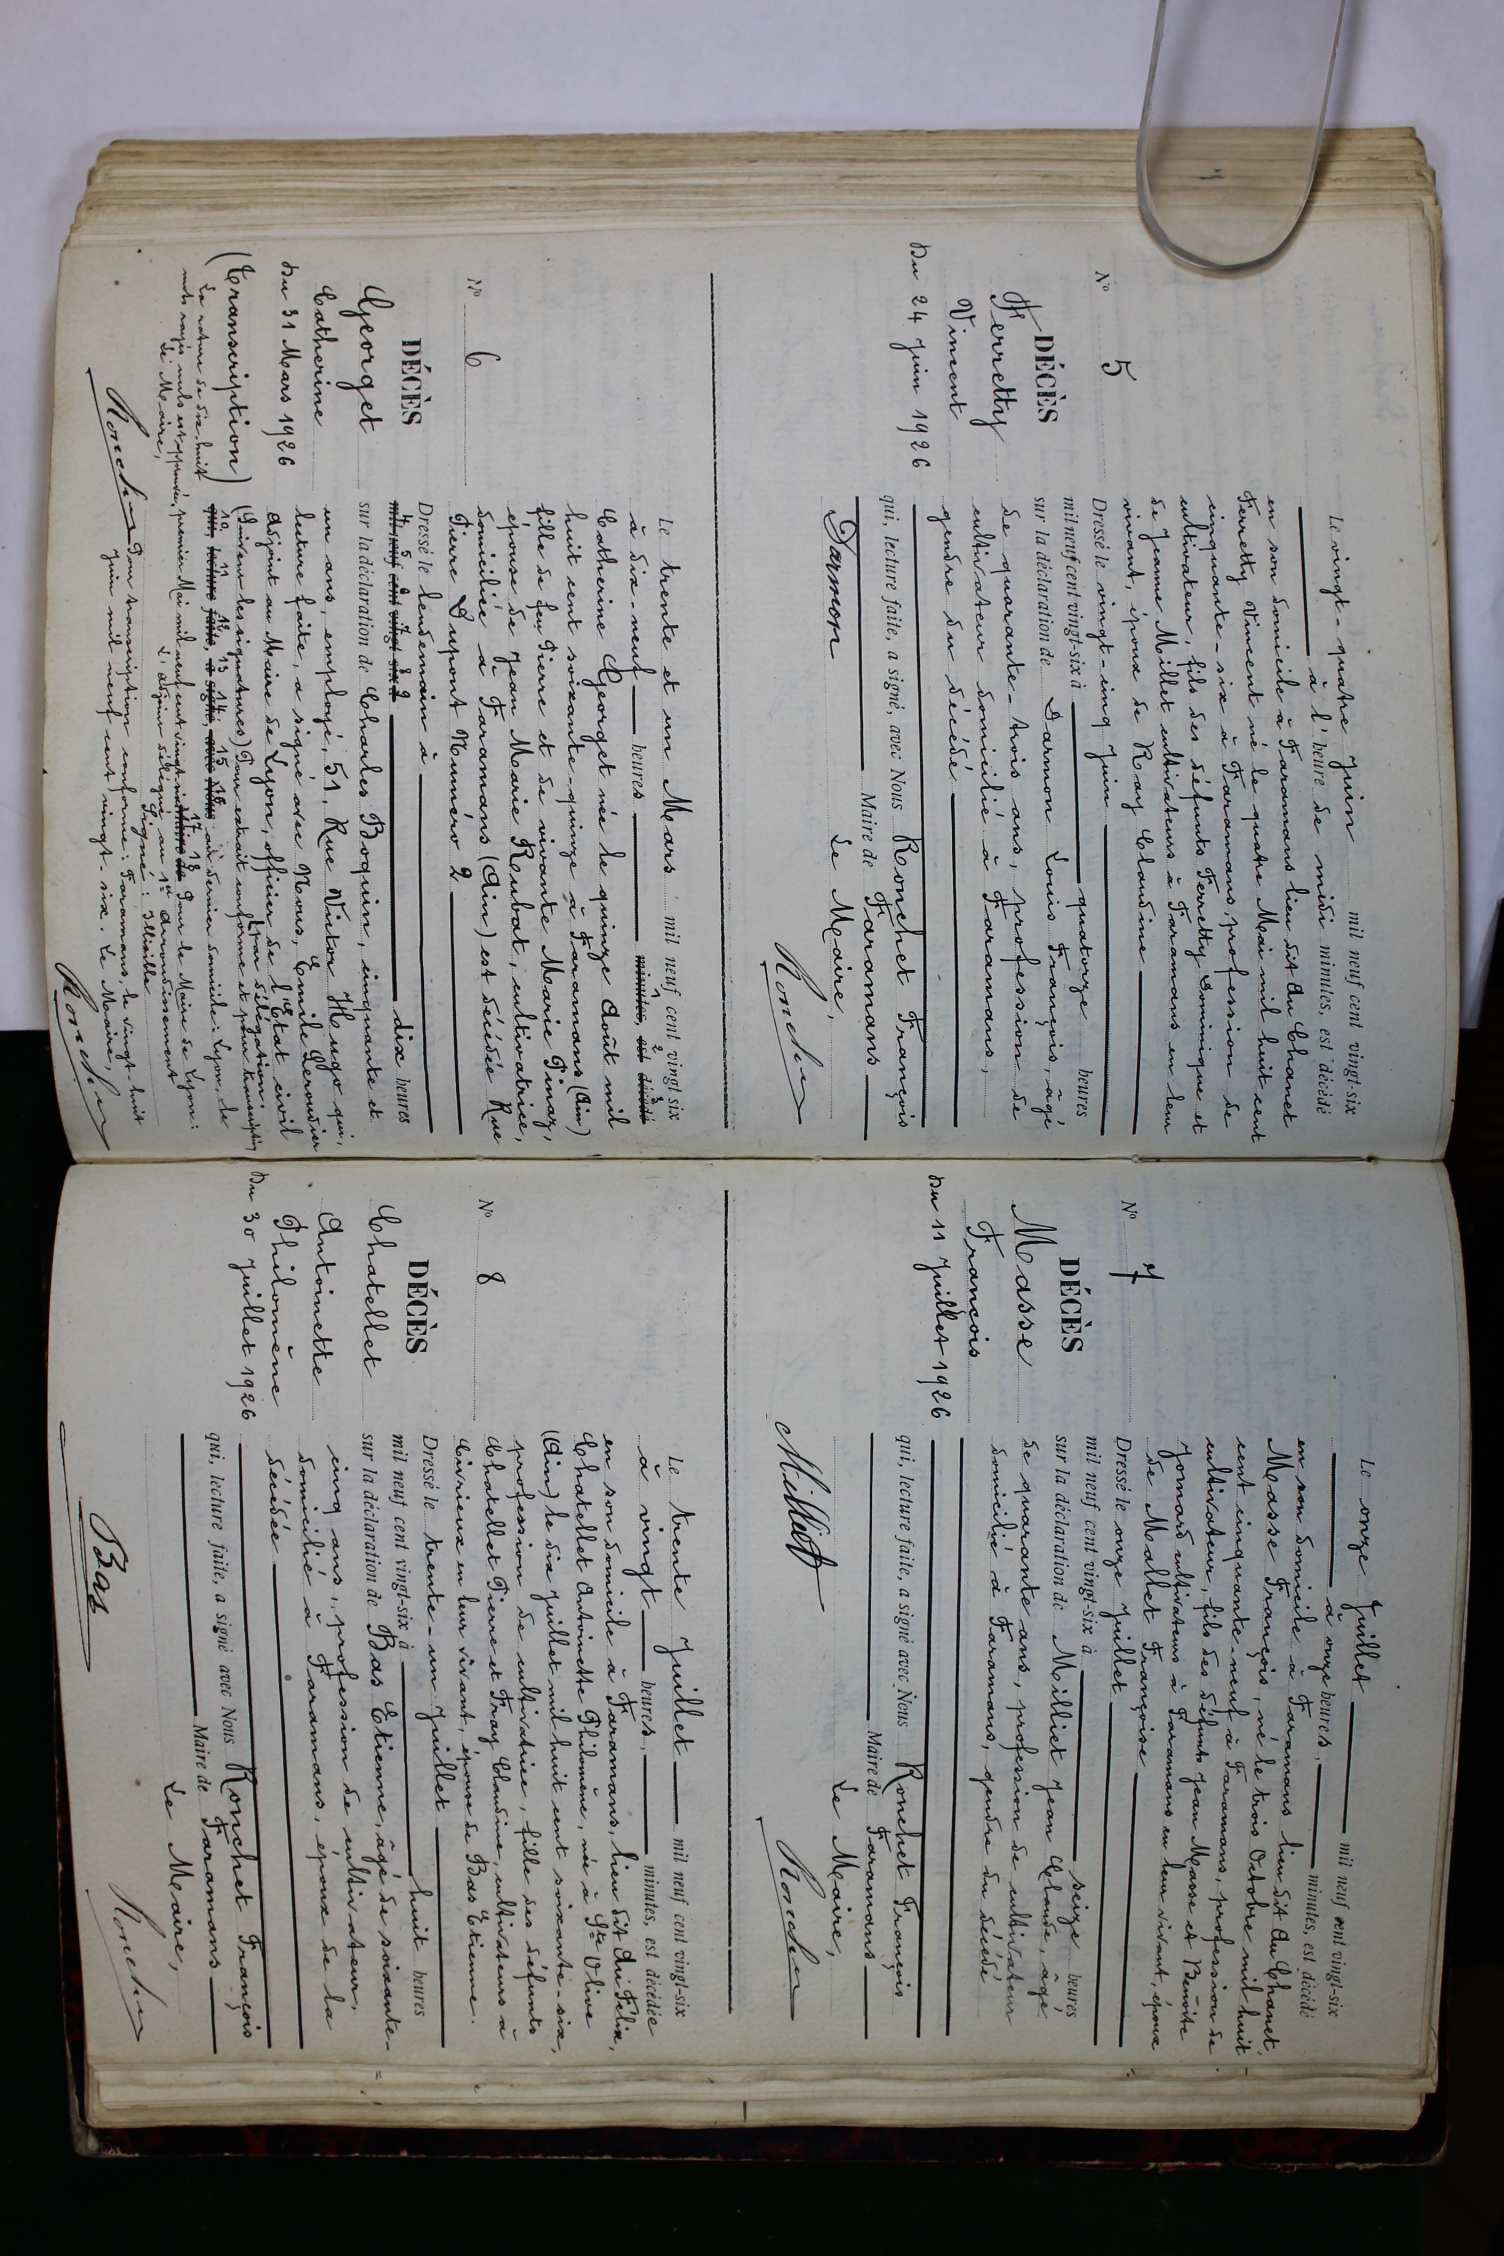 N° 5
DÉCÈS
Ferretty
Vincent
Du 24 Juin 1926
Le vingt-quatre Juin mil neuf cent vingt-six
à l'heure de midi minutes, est décédé
en son domicile à Faramans lieu dit Au Chanet
Ferretty Vincent né le quatre Mai mil huit cent
cinquante-six à Faramans, profession de
cultivateur, fils des défunts Ferretty Dominique et
de Jeanne Millet cultivateurs à Faramans en leur
vivant, époux de Ray Claudine
Dressé le vingt-cinq Juin
mil neuf cent vingt-six à quatorze heures
sur la déclaration de Darmon Louis François, âgé
de quarante-trois ans, profession de
cultivateur domicilié à Faramans,
gendre du décédé
qui, lecture faite, a signé, avec Nous Ronchet François
Maire de Faramans
Darmon Le Maire,
Ronchet
N° 6
DÉCÈS
Georget
Catherine
Du 31 Mars 1926
(Transcription)
La rature de dix huit
mots rayés nuls est approuvée,
Le Maire,
Ronchet
Le trente et un Mars mil neuf cent vingt six
à dix-neuf heures minutes, est décédé
1 2 3
Catherine Georget née le quinze Août mil
huit cent soixante-quinze à Faramans (Ain)
fille de feu Pierre et de vivante Marie Pinaz,
épouse de Jean Marie Roubat, cultivatrice,
domiciliée à Faramans (Ain) est décédée Rue
Pierre Dupont Numéro 2
Dressé le lendemain à
4 5 6 7 8 9
mil neuf cent vingt six à dix heures
sur la déclaration de Charles Boquin, cinquante et
un ans, employé, 51, Rue Victor Hugo qui,
lecture faite, a signé avec Nous, Emile Leroudier
Adjoint au Maire de Lyon, officier de l'Etat civil
par délégation.
(Suivent les signatures) Pour extrait conforme et pour transcription
10 11 12 13 14 15 16
qui, lecture faite, a signé, avec Nous au dernier domicile: Lyon, le
17 18
premier Mai mil neuf cent vingt six Maire de Pour le Maire de Lyon:
L'adjoint délégué au 1er arrondissement
Signé:
Pour transcription conforme: Faramans, le vingt-huit
Juin mil neuf cent vingt-six. Le Maire,
Ronchet
N° 7
DÉCÈS
Masse
François
Du 11 Juillet 1926
Le onze Juillet mil neuf cent vingt-six
à onze heures, minutes, est décédé
en son domicile à Faramans lieu dit Au Chanet,
Masse François, né le trois Octobre mil huit
cent cinquante-neuf à Faramans, profession de
cultivateur, fils des défunts Jean Masse et Benoîte
Jomard cultivateurs à Faramans en leur vivant, époux
de Mallet Françoise
Dressé le onze Juillet
mil neuf cent vingt-six à seize heures
sur la déclaration de Milliet Jean Claude, âgé
de quarante ans, profession de cultivateur
domicilié à Faramans, gendre du décédé
qui, lecture faite, a signé avec Nous Ronchet François
Maire de Faramans
Le Maire,
Milliet Ronchet
N° 8
DÉCÈS
Chatellet
Antoinette
Philomène
Du 30 Juillet 1926
Le trente Juillet mil neuf cent vingt-six
à vingt heures, minutes, est décédée
en son domicile à Faramans, lieu dit Au Félix,
Chatellet Antoinette Philomène, née à Ste Olive
(Ain) le dix Juillet mil huit cent soixante-six,
profession de cultivatrice, fille des défunts
Chatellet Pierre et Fray Claudine, cultivateurs à
Civrieux en leur vivant, épouse de Bas Etienne.
Dressé le trente-un Juillet
mil neuf cent vingt-six à huit heures
sur la déclaration de Bas Etienne, âgé de soixante-
cinq ans, profession de cultivateur,
domicilié à Faramans, époux de la
décédée
qui, lecture faite, a signé avec Nous Ronchet François
Maire de Faramans
Le Maire,
Bas Ronchet